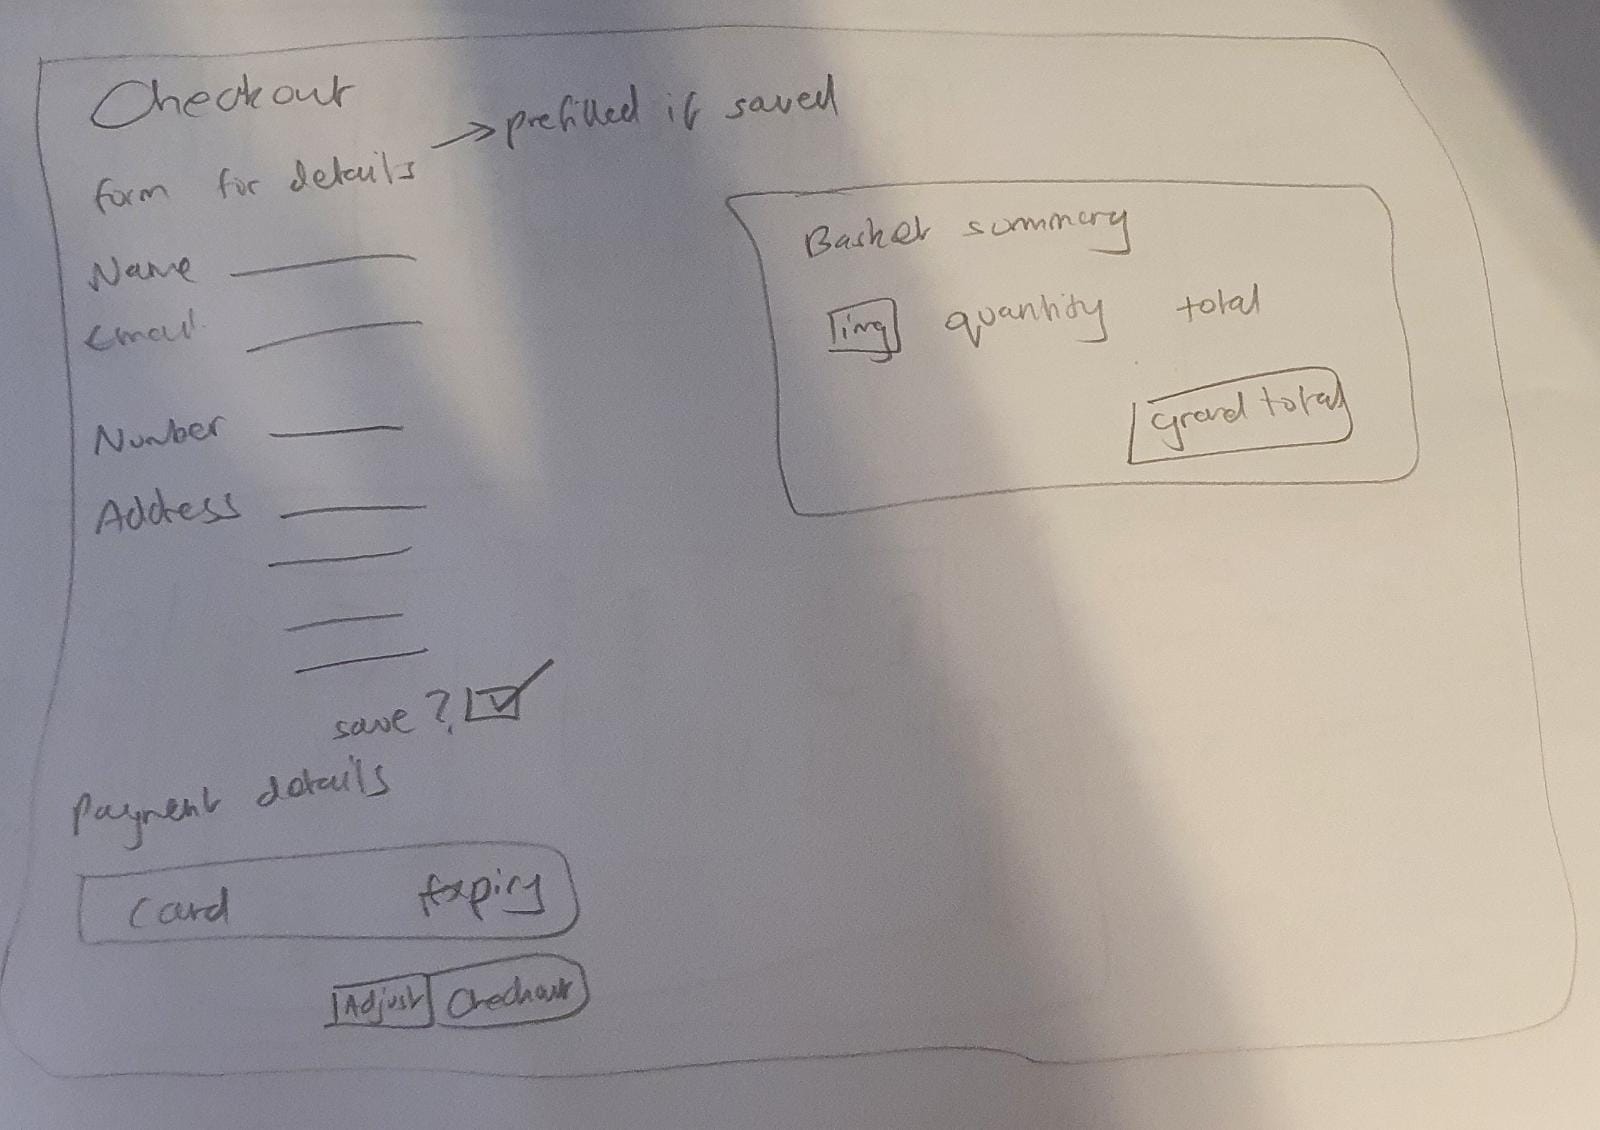 Checkout
form for details → prefilled if saved
Name
Email
Number
Address
save?
Payment details
Card Expiry
Adjust Checkout
Basket summary
img quantity total
grand total